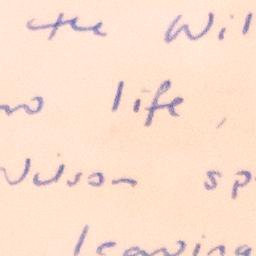 the Wil
no life,
Wilson sp
leaving